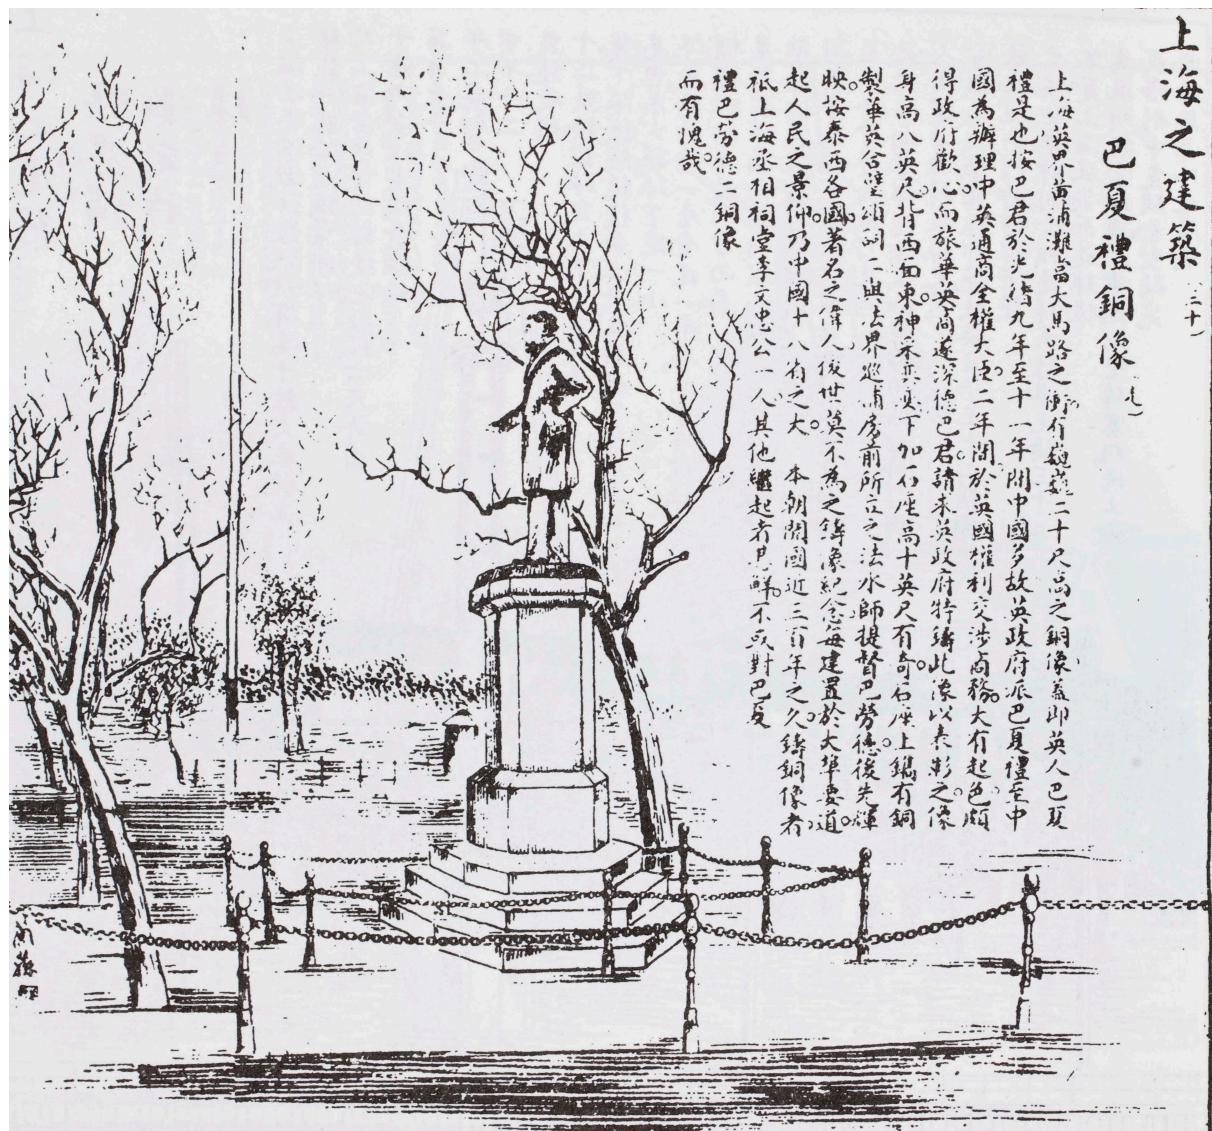 上海之建築（二十）
巴夏禮銅像
上海英界黃浦灘當大馬路之衝有巍巍二十尺高之銅像蓋即英人巴夏
禮是也按巴君於光緒九年至十一年間中國多故英政府派巴夏禮至中
國為辦理中英通商全權大臣。二年間於英國權利交涉商務。大有起色。頗
得政府歡心。而旅華英商遂深德巴君。請求英政府特鑄此像以表彰之。像
身高八英尺。背西面東。神采奕奕下加一石座高十英尺有奇。石座上鐫有銅
製華英合璧頌詞二與法界巡浦房前所立之法水師提督巴勞德。後先輝
映。按泰西各國。著名之偉人後世莫不為之鑄像紀念。每建置於大埠要道。
起人民之景仰。乃中國十八省之大。 本朝開國近三百年之久。鑄銅像者。
祇上海丞相祠堂李文忠公一人其他繼起者尹鮮。不或對巴夏
禮巴勞德二銅像
而有愧哉。